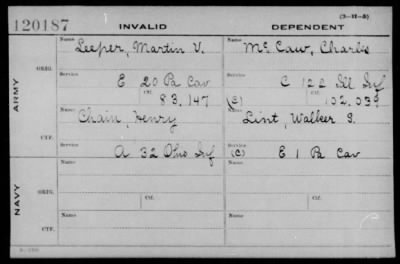 120187
INVALID
DEPENDENT
(3-11-8)
ARMY
ORIG.
Name
Leeper, Martin V.
Name
McCaw, Charles
Service
E 20 Pa Cav
Service
C 122 Ill Inf
Ctf.
83,147
(C)
Ctf.
102,039
CTF.
Name
Chain, Henry
Name
Lint, Walker S.
Service
A 32 Ohio Inf
Service
(C) E 1 Pa Cav
NAVY
ORIG.
Name
Name
Service
Ctf.
Service
Ctf.
CTF.
Name
Name
Service
Service